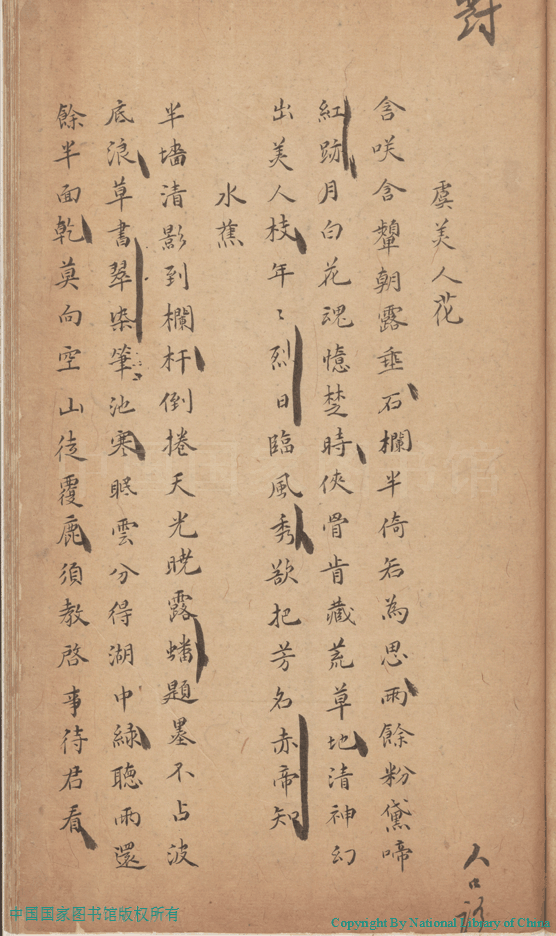 對
虞美人花
含咲含顰朝露垂石欄半倚若為思雨餘粉黛啼
紅跡月白花魂憶楚時俠骨肯藏荒草地清神幻
出美人枝年〻烈日臨風秀欲把芳名赤帝知
水蕉
半墻清影到欄杆倒捲天光晓露蟠題墨不占波
底浪草書翠染筆池寒眠雲分得湖中緑聽雨還
餘半面乾莫向空山徒覆鹿須教啓事待君看
人口
中国国家图书馆
中国国家图书馆版权所有
Copyright By National Library of China